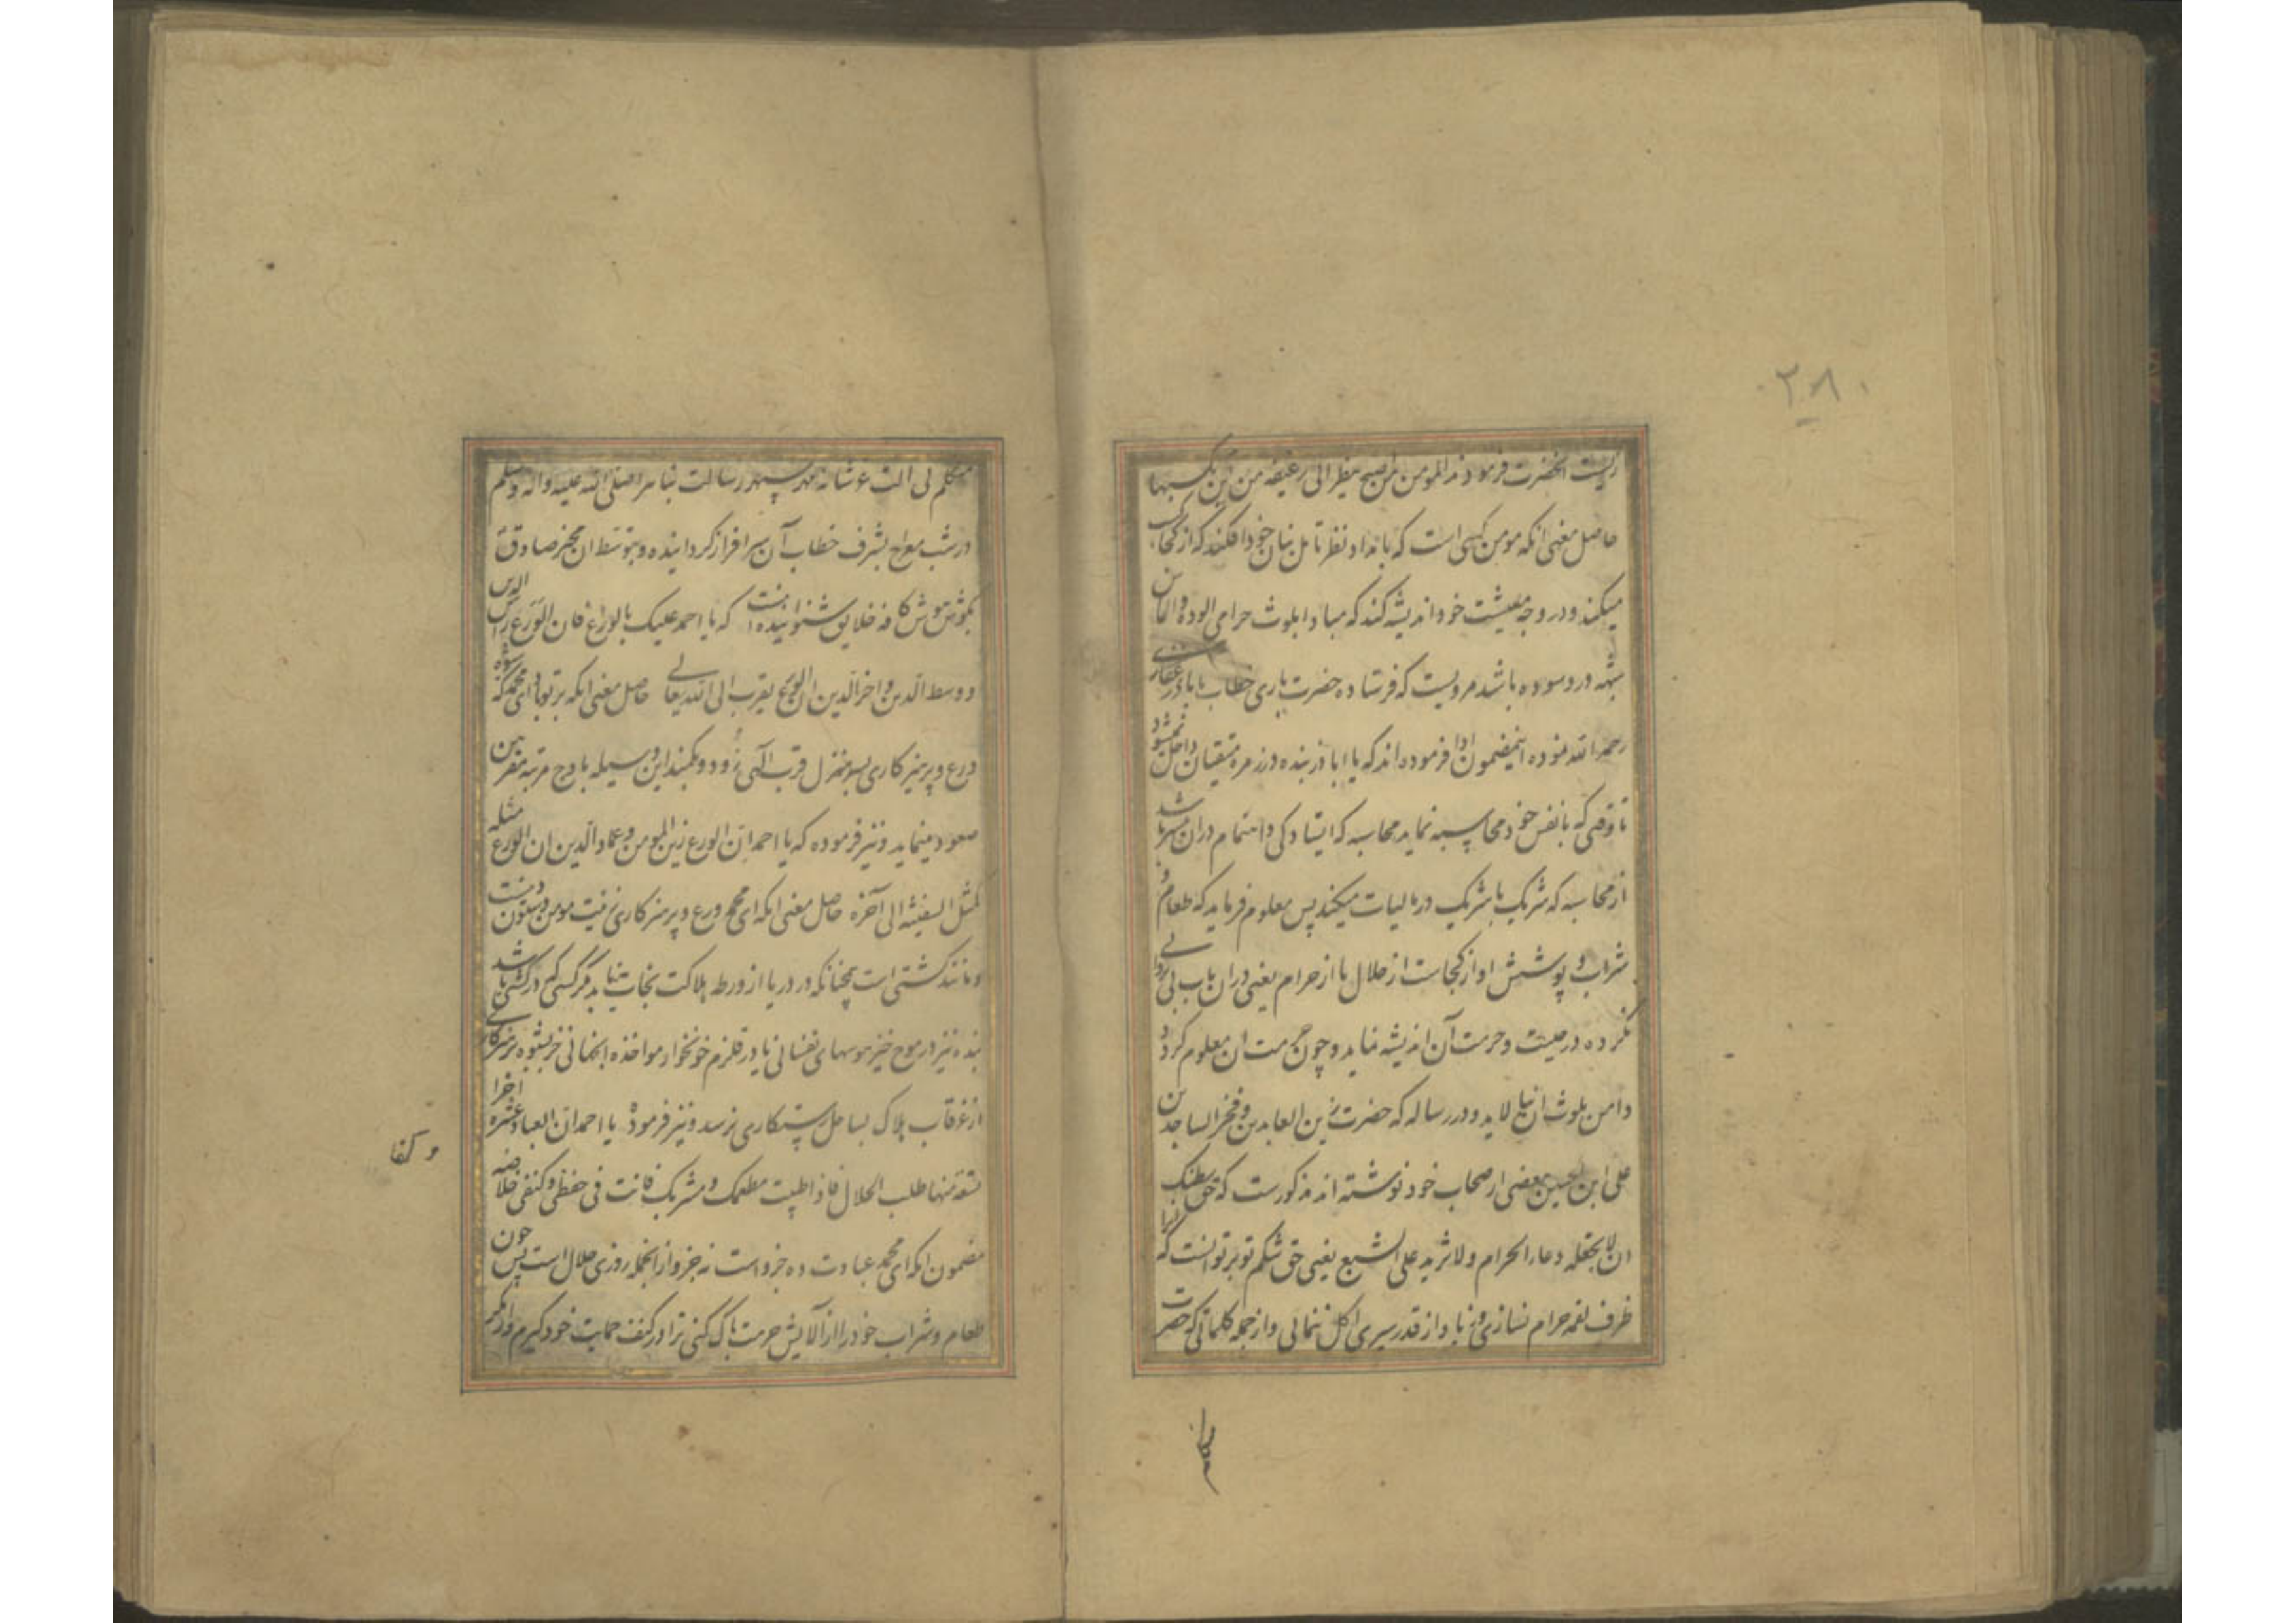 ۲۸۰
زیست انحضرت فرمودند المومن من یصبح ینظر الی رغیفه من این کسبها
حاصل معنی انکه مومن کسی است که بامداد نظر تامل بنان خود افکند که از کجا کسب
میکند و در وجه معیشت خود اندیشه کند که مبادا بلوث حرامی الوده و دامان
شبهه در وسوده باشد مرویست که فرستاده حضرت باری خطاب بابا ذر غفاری
رحمه الله نموده اینمضمون ادا فرموده اند که یا ابا ذر بنده در زمره متقیان داخل نمیشود
تا وقتی که با نفس خود محاسبه نماید محاسبه که ایستادکی و اهتمام در ان بیشتر باشد
از محاسبه که شریک با شریک در مالیات میکند پس معلوم فرماید که طعام و
شراب و پوشش او از کجاست از حلال یا از حرام یعنی در ان باب بی پروایی
نکرده در حلیت و حرمت آن اندیشه نماید و چون حرمت ان معلوم کردد
دامن بلوث ان نیالاید و در رساله که حضرت زین العابدین و فخر الساجدین
علی ابن الحسین ببعضی از صحاب خود نوشته اند مذکورست که حق بطنک
ان لا تجعله دعاء الحرام ولا تزید علی الشبع یعنی حق شکم تو بر تو انست که انرا
ظرف لقمه حرام نسازی و زیاد از قدر سیری اکل ننمائی و از جمله کلماتی که حضرت
متکلم لی الت ء شانه مهر سپهر رسالت پناهرا صلی الله علیه واله وسلم
در شب معراج بشرف خطاب آن سرافراز کردانیده و بتوسط ان مخبر صادق
بکوش هوش کافه خلایق شنوانیده اینست که یا احمد علیک بالورع فان الورع راس الدین
و وسط الدین و اخر الدین ان الورع یقرب الی الله تعالی حاصل معنی انکه بر تو باد ای محمد که بنده
ورع و پرهیزکاری بسر منزل قرب الهی رود و بکمند این وسیله باوج مرتبه مقربین
صعود مینماید و نیز فرموده که یا احمد ان الورع زین المومن و عماد الدین ان الورع مثله
کمثل السفینه الی آخره حاصل معنی انکه ای محمد ورع و پرهیزکاری زینت مومن و ستون دینست
و مانند کشتی است همچنانکه در دریا از ورطه هلاکت نجات نیابد مکر کسی که در کشتی باشد
بنده نیز در موج خیز هوسهای نفسانی یا در قلزم خونخوار مواخذه انجهانی جز بشیوه پرهیزکاری
از غرقاب هلاک بساحل رستکاری نرسد و نیز فرموده یا احمد ان العباده عشره اجزا
تسعه منها طلب الحلال فاذا طیبت مطعمک و مشربک فانت فی حفظی و کنفی خلاصه
مضمون انکه ای محمد عبادت ده جزو است نه جزو از انجمله روزی حلال است پس چون
طعام و شراب خود را از آلایش حرمت پاک کنی ترا در کنف حمایت خود کیرم و از مکر